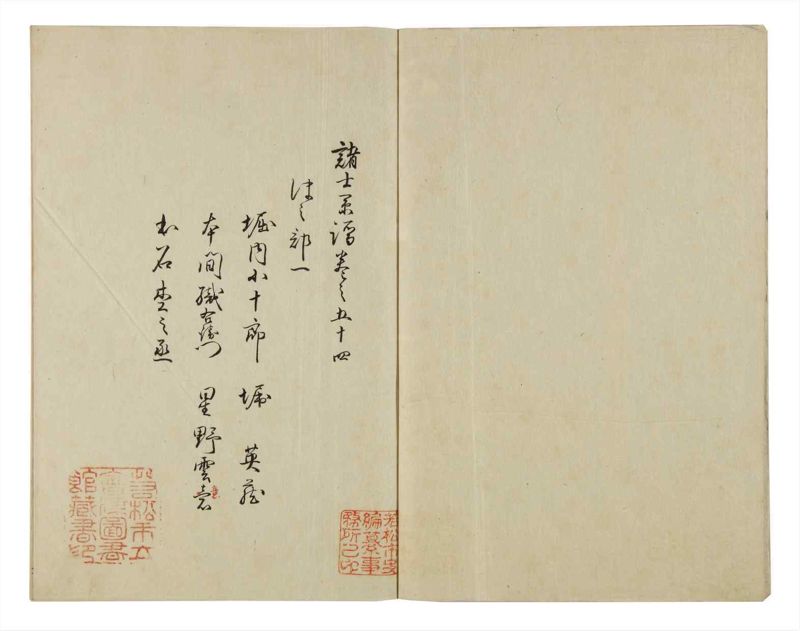 諸士系譜巻之五十四
保之部一
堀内小十郎 堀 英蔵
本間織右衛門 星野雲意
石杢之丞
若松市史
編纂事
務所之印
若松市立
會津圖書
館藏書印